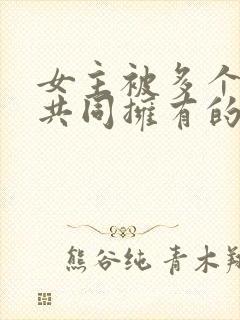 女主被多个
共同擁有的
熊谷纯 青木翔